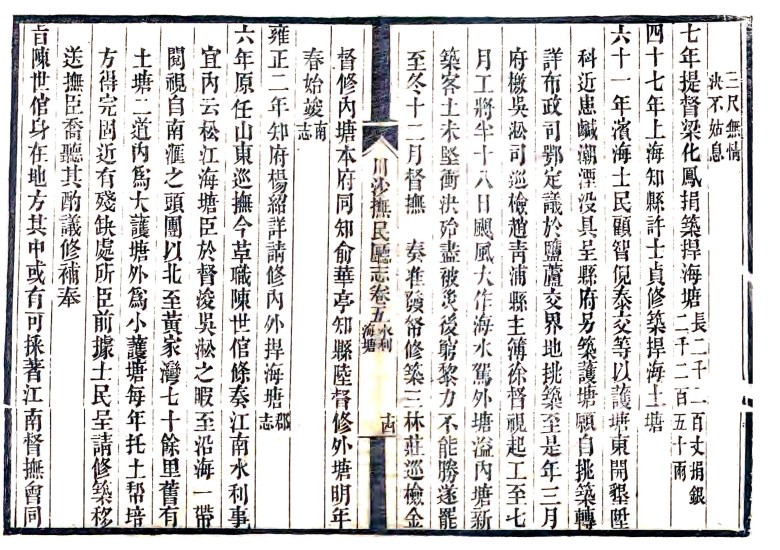 三尺無情
決不姑息
七年提督梁化鳳捐築捍海塘長二千二百丈捐銀二千二百五十兩
四十七年上海知縣許士貞修築捍海土塘
六十一年濱海士民顧智倪泰交等以護塘東開墾陞
科近患鹹潮湮没具呈縣府另築護塘願自挑築轉
詳布政司鄂定議於鹽蘆交界地挑築至是年三月
府檄吳淞司巡檢趙靑浦縣主簿徐督視起工至七
月工將半十八日颶風大作海水駕外塘溢内塘新
築客土未堅衝決殆盡被災後窮黎力不能勝遂罷
至冬十二月督撫 奏准發帑修築三林莊巡檢金
川沙撫民廳志卷五水利海塘 十四
督修内塘本府同知俞華亭知縣陸督修外塘明年
春始竣南志
雍正二年知府楊紹詳請修内外捍海塘郡志
六年原任山東巡撫今革職陳世倌條奏江南水利事
宜内云松江海塘臣於督浚吳淞之暇至沿海一帶
閱視自南滙之頭團以北至黃家灣七十餘里舊有
土塘二道内爲大護塘外爲小護塘每年托土帮培
方得完固近有殘缺處所臣前據士民呈請修築移
送撫臣喬聽其酌議修補奉
旨陳世倌身在地方其中或有可採著江南督撫會同